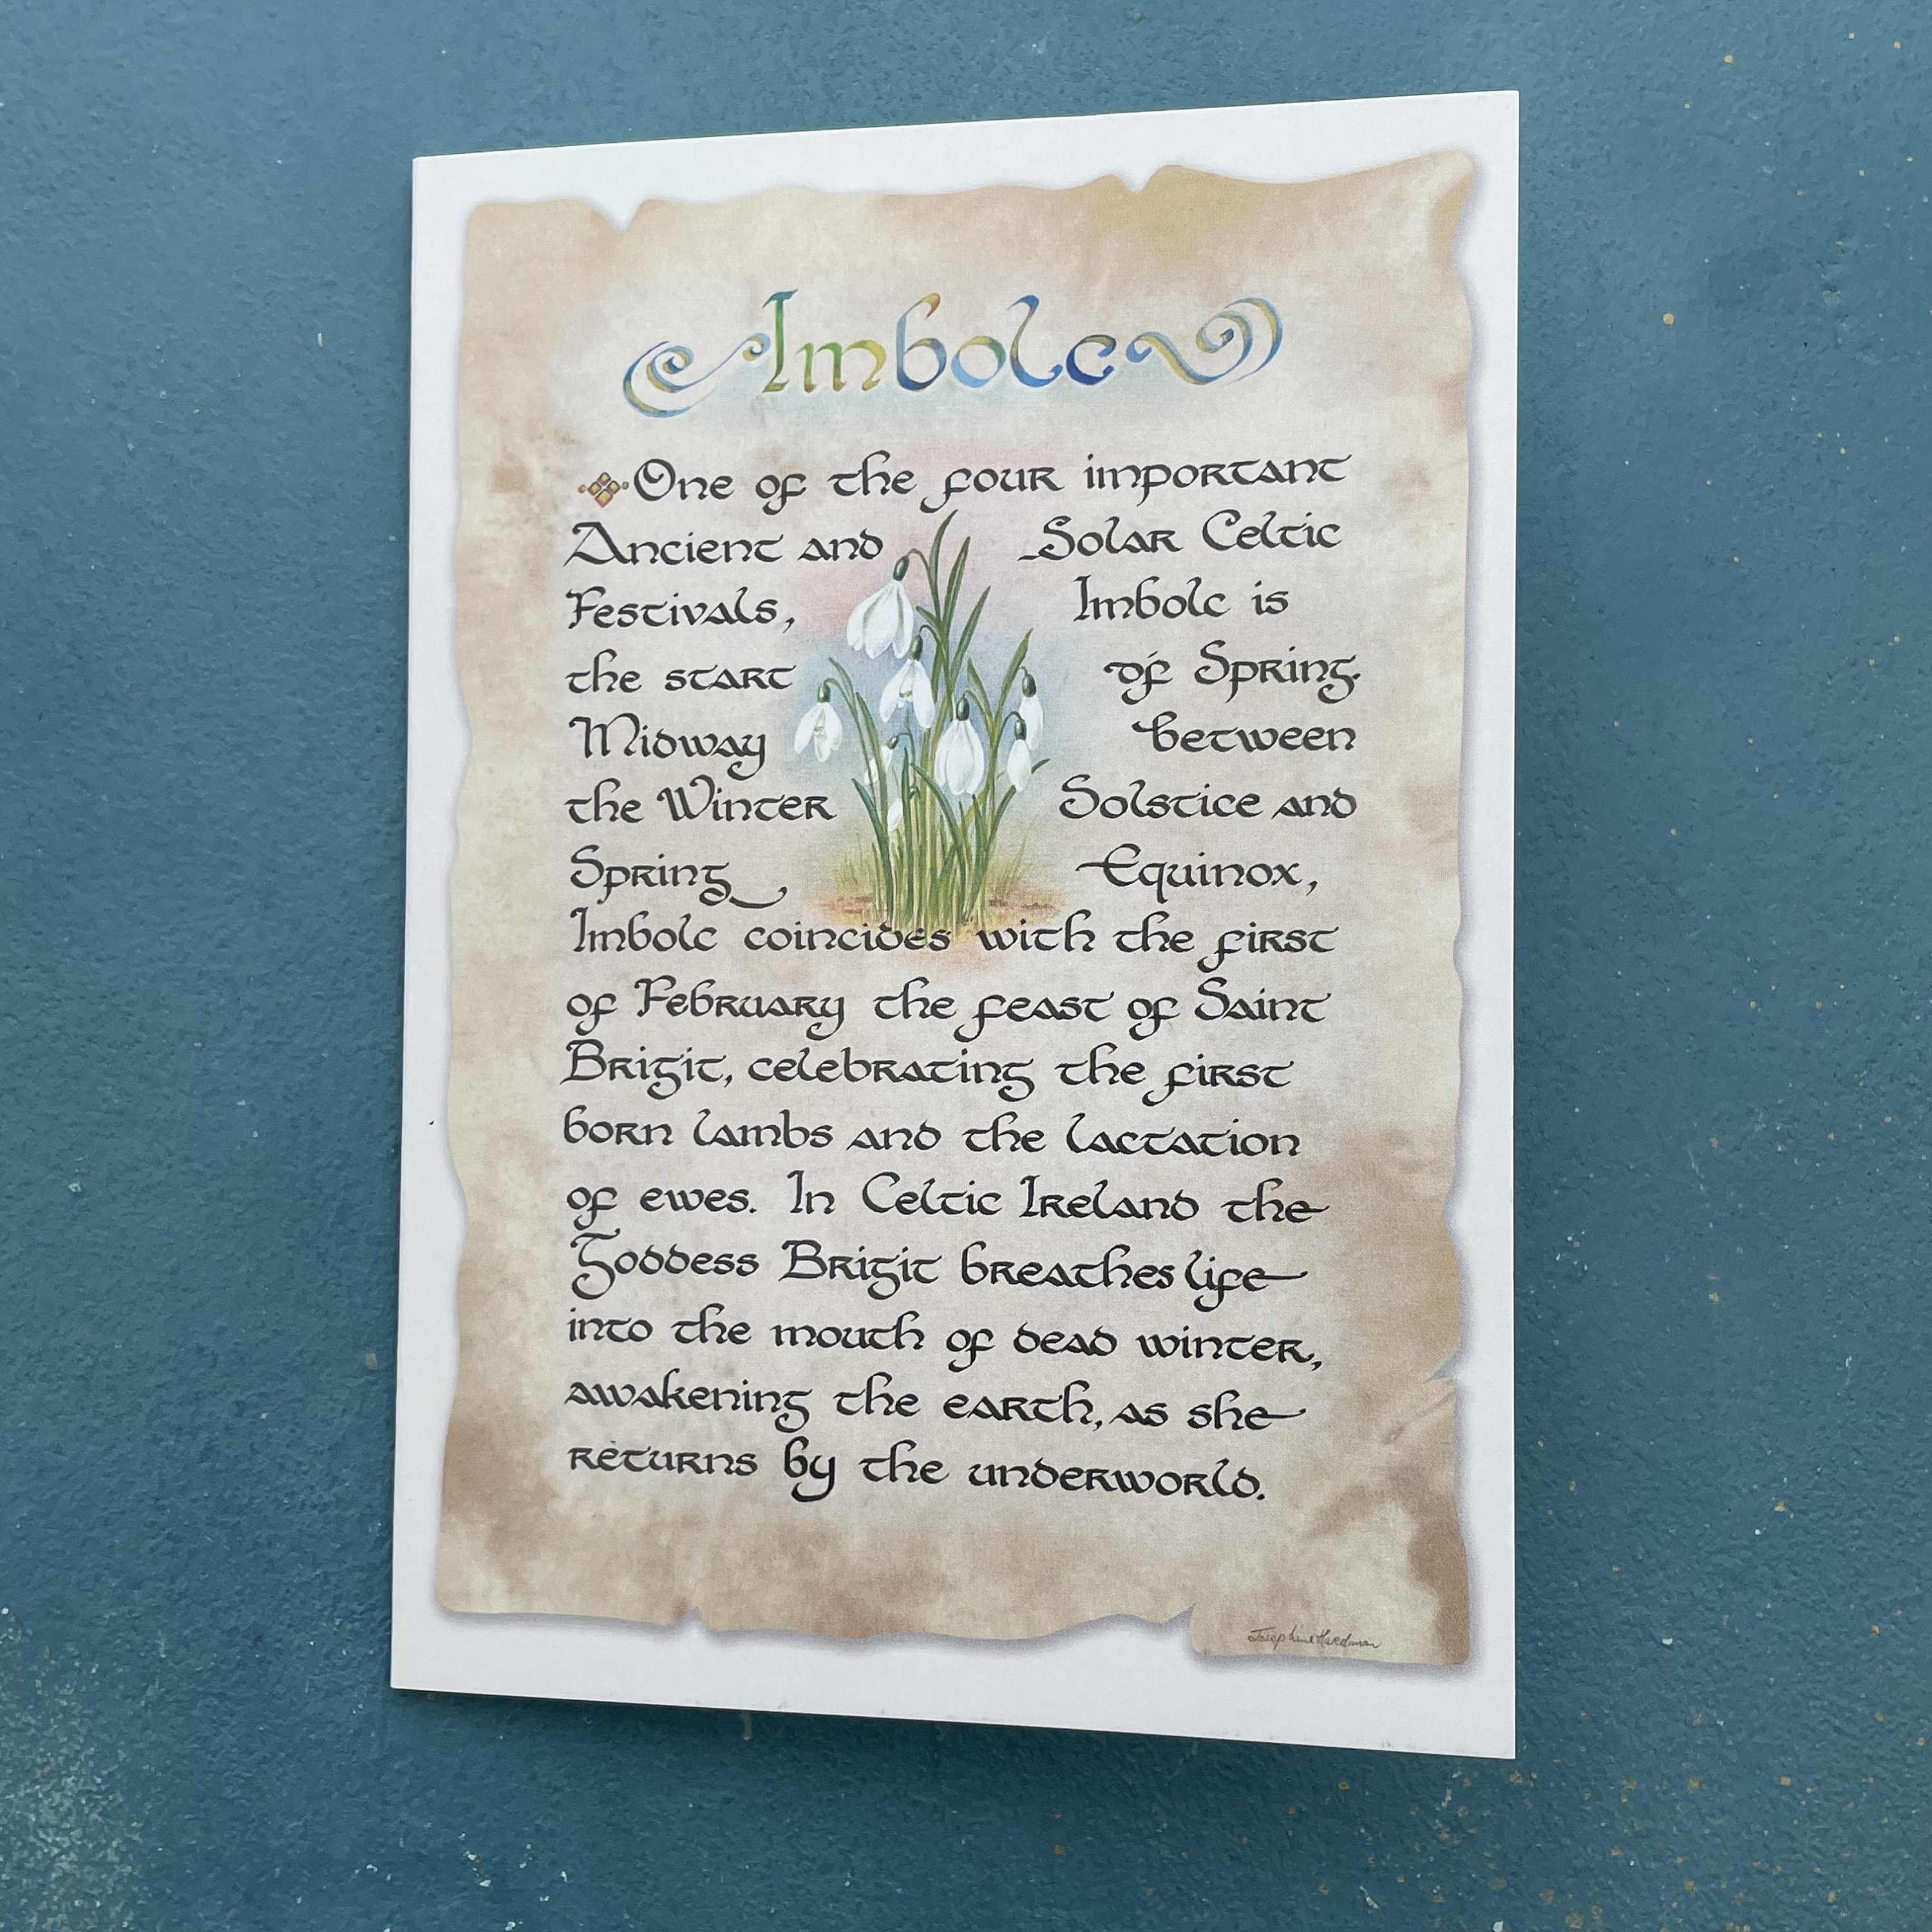 Imbolc
One of the four important
Ancient and Solar Celtic
Festivals, Imbolc is
the start of Spring.
Midway between
the Winter Solstice and
Spring Equinox,
Imbolc coincides with the first
of February the feast of Saint
Brigit, celebrating the first
born lambs and the lactation
of ewes. In Celtic Ireland the
Goddess Brigit breathes life
into the mouth of dead winter,
awakening the earth, as she
returns by the underworld.
Josephine Hardman